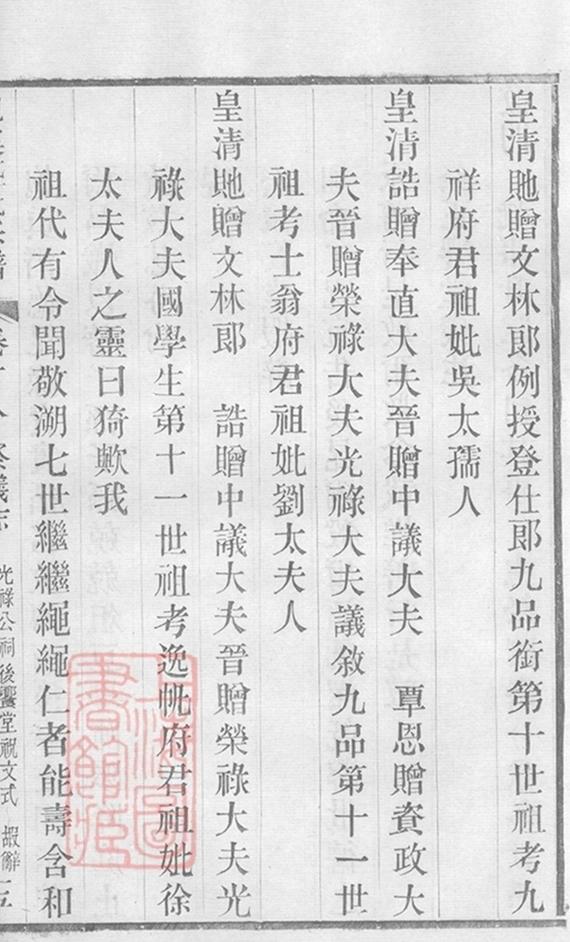 皇清貤贈文林郎例授登仕郎九品銜第十世祖考九
祥府君祖妣吳太孺人
皇清誥贈奉直大夫晉贈中議大夫　覃恩贈資政大
夫晉贈榮祿大夫光祿大夫議敘九品第十一世
祖考士翁府君祖妣劉太夫人
皇清貤贈文林郎　誥贈中議大夫晉贈榮祿大夫光
祿大夫國學生第十一世祖考逸㠶府君祖妣徐
太夫人之靈曰猗歟我
祖代有令聞敬溯七世繼繼繩繩仁者能壽含和
光祿公祠後饗堂祝文式　嘏辭